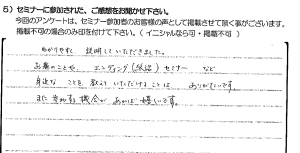 5）セミナーに参加された、ご感想をお聞かせ下さい。
今回のアンケートは、セミナー参加者のお客様の声として掲載させて頂く事がございます。
掲載不可の場合のみ印を付けて下さい。（ イニシャルなら可 ・ 掲載不可 ）
わかりやすく 説明していただきました。
お墓のことや、エンディング(終活) セミナー など
身近な ことを 教えていただけることは ありがたいです。
また 参加する 機会が あれば 嬉しいです。